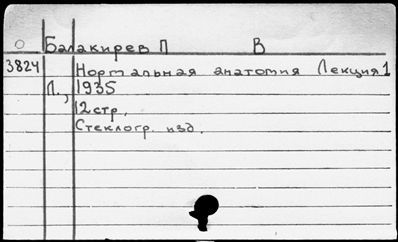 Балакирев П В
3824 Нормальная анатомия Лекция 1
Л., 1935
12 стр.
Стеклогр. изд.